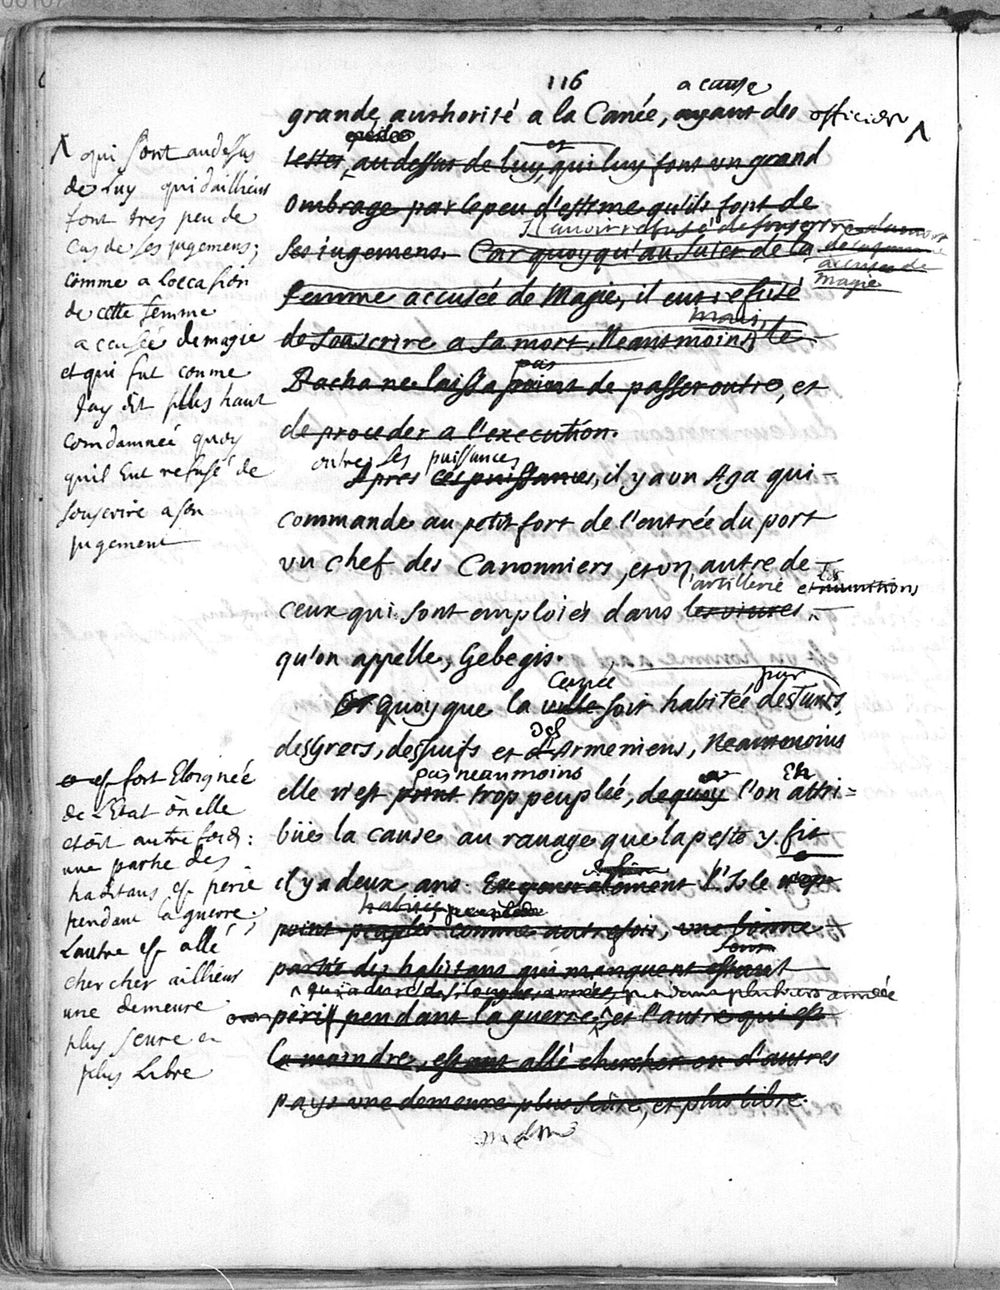 116
a cause
grande authorité a la Canée, ayant des officiers ^
et
testes, au dessus de luy, qui luy font un grand
ombrage par le peu d'estime qu'ils font de
Il auoit refusé de souscrire
ses iugemens. Car quoyqu'au suiet de la
accusée de
magie
femme accusée de Magie, il eut refusé
mais
de souscrire a sa mort. Neantmoins, le
pas
Bacha ne laissa point de passer outre, et
de proceder a l'execution.
outre ses puissances
Apres ces puissances, il y a un Aga qui
commande au petit fort de l'entrée du port
un chef des Canonniers, et un autre de
l'artillerie et les munitions
ceux qui sont emploiés dans les viures
qu'on appelle, Gebegis.
Canée par
Or quoyque la ville soit habitée des Turcs,
des
des Grecs, des Juifs et d'Armeniens, Neantmoins
pas neanmoins Et
elle n'est point trop peuplée, dequoy l'on attri=
büe la cause au rauage que la peste y fit
il y a deux ans. Et generalement l'Isle n'est
habitée
point peuplée comme autrefois, une bonne
partie des habitans qui manquent estant
qui a duré de si longues années, pendant plusieurs année
perie pendant la guerre, et l'autre qui est
la moindre, estant allé chercher en d'autres
pays une demeure plus seure, et plus libre.
^ qui sont au dessus
de Luy qui d'ailleurs
font tres peu de
cas de ses jugemens;
comme a Loccasion
de cette femme
accusée de magie
et qui fut comme
Jay dit plus haut
Condamneé quoy
quil Eut refusé de
souscrire a son
jugement
est fort Eloignée
de L'Etat ou elle
etoit autre fois:
une partie des
habitans est perie
pendant la guerre;
Lautre est allé
chercher ailleurs
une demeure
plus seure et
plus Libre